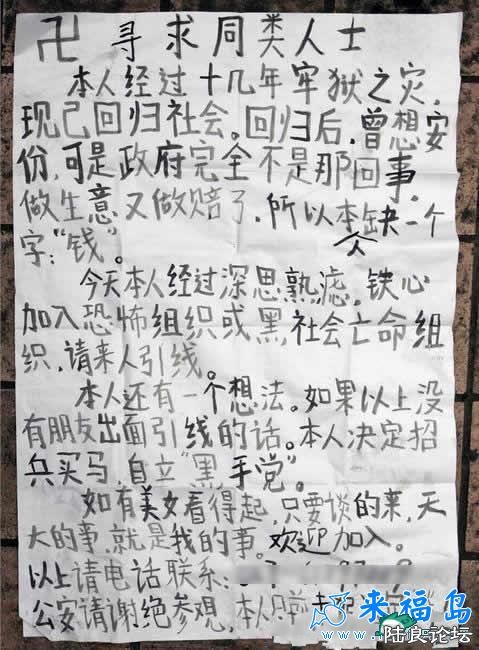 卍 寻求同类人士
本人经过十几年牢狱之灾,
现已回归社会。回归后,曾想安
份,可是政府完全不是那回事。
做生意又做赔了,所以本人缺一个
字:“钱”。
今天本人经过深思熟虑,铁心
加入恐怖组织或黑社会亡命组
织,请来人引线。
本人还有一个想法。如果以上没
有朋友出面引线的话。本人决定招
兵买马,自立“黑手党”。
如有美女看得起,只要谈的来,天
大的事,就是我的事。欢迎加入。
以上请电话联系:
公安请谢绝参观,本人
来福岛
陆良论坛